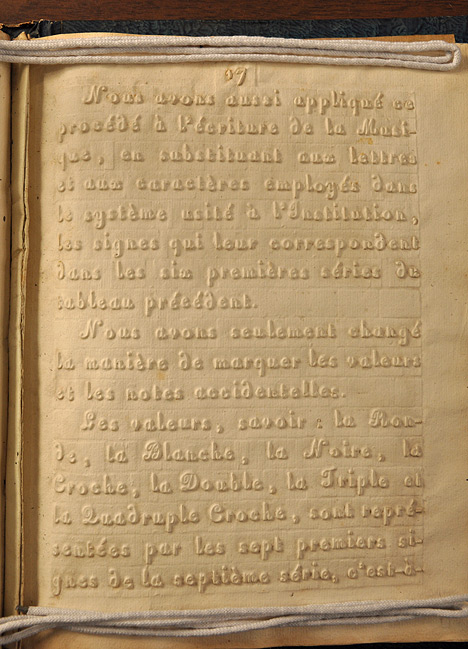 17
Nous avons aussi appliqué ce
procédé à l'écriture de la Musi-
que, en substituant aux lettres
et aux caractères employés dans
le système usité à l'Institution,
les signes qui leur correspondent
dans les six premières séries du
tableau précédent.
Nous avons seulement changé
la manière de marquer les valeurs
et les notes accidentelles.
Les valeurs, savoir : la Ron-
de, la Blanche, la Noire, la
Croche, la Double, la Triple et
la Quadruple Croche, sont repré-
sentées par les sept premiers si-
gnes de la septième série, c'est-à-